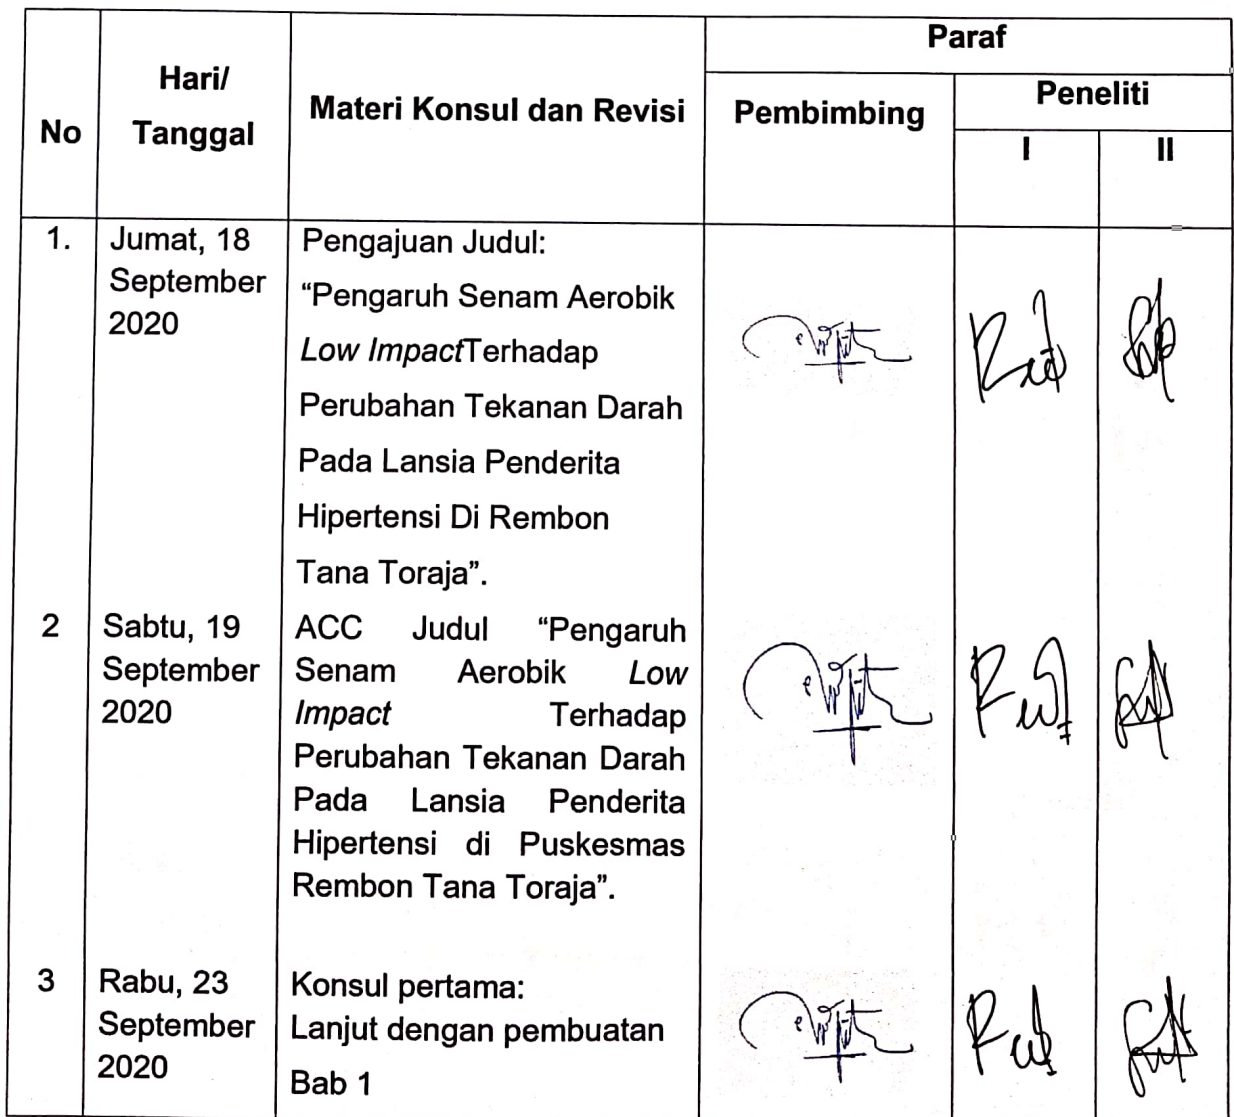 Paraf
Hari/
Materi Konsul dan Revisi
Pembimbing
Peneliti
No
Tanggal
I
II
1.
Jumat, 18
September
2020
Pengajuan Judul:
“Pengaruh Senam Aerobik
Low ImpactTerhadap
Perubahan Tekanan Darah
Pada Lansia Penderita
Hipertensi Di Rembon
Tana Toraja”.
2
Sabtu, 19
September
2020
ACC Judul “Pengaruh
Senam Aerobik Low
Impact Terhadap
Perubahan Tekanan Darah
Pada Lansia Penderita
Hipertensi di Puskesmas
Rembon Tana Toraja”.
3
Rabu, 23
September
2020
Konsul pertama:
Lanjut dengan pembuatan
Bab 1